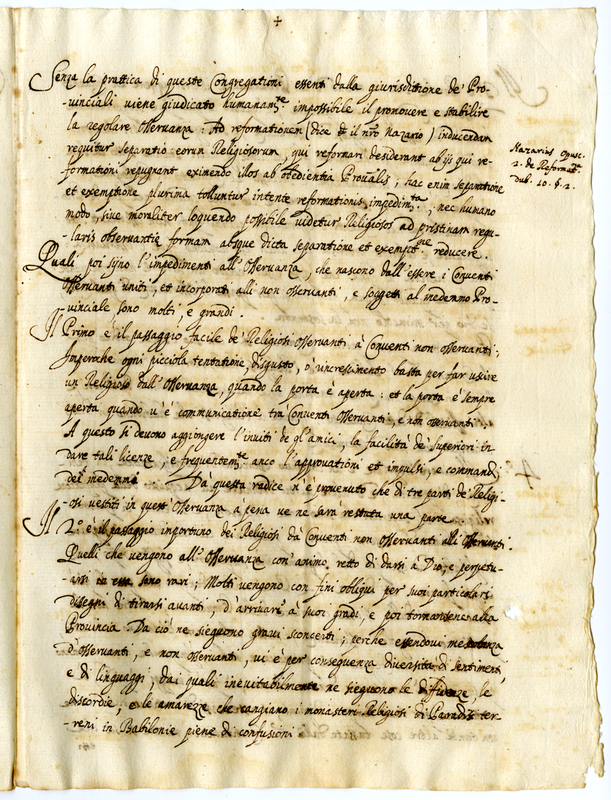 +
Senza la prattica di queste Congregationi essenti dalla giurisditione de' Pro-
-uinciali uiene giudicato humanam.te impossibile il promouere e stabilire
la regolare osseruanza: Ad reformationem (dice et il nro Nazario) inducendam
requiritur separatio eorum Religiosorum, qui reformari desiderant ab ijs qui re-
formationi repugnant eximendo illos ab obedientia Prou.alis, hac enim separatione
et exemptione plurima tolluntur intente reformationis impedim.ta, nec humano
modo, siue moraliter loquendo possibile uidetur Religiosos ad pristinam regu-
-laris obseruantie formam absque dicta separatione et exempt.ne reducere.
Nazarius Opusc.
2. de Reformat.ne
Dub. 10. §. 2.
Quali poi sijno l'impedimenti all'Osseruanza, che nascono dall'essere i Conuenti
osseruanti uniti, et incorporati alli non osseruanti, e soggetti al medemo Pro-
-uinciale sono molti, e grandi.
Il Primo è il passaggio facile de' Religiosi osseruanti à Conuenti non osseruanti;
Imperoche ogni picciola tentatione, disgusto, o' increscimento basta per far uscire
un Religioso dall'Osseruanza, quando la porta è aperta: et la porta è sempre
aperta quando u'è communicatione tra Conuenti osseruanti, e non osseruanti.
A questo si deuono aggiongere l'inuiti de gl'amici, la facilità de' superiori in
dare tali licenze, e frequentem.te anco l'approuationi et impulsi, e commandi
dei medemi... Da questa radice n'è prouenuto che di tre parti de' Religi-
-osi uestiti in quest'Osseruanza a pena ue ne sarà restata una parte
Il 2.o è il passaggio importuno dei Religiosi da Conuenti non osseruanti alli osseruanti.
Quelli che uengono all'Osseruanza con animo retto di darsi à Dio, e perpetu-
-arsi in essa sono rari; Molti uengono con fini obliqui per suoi particolari
disegni di tirarsi auanti, d'arriuare à suoi gradi, e poi tornarsene alla
Prouincia: Da ciò ne sieguono graui sconcerti; perche essendoui mescolanza
d'osseruanti, e non osseruanti, ui è per conseguenza diuersità di sentimenti,
e di linguaggi dai quali ineuitabilmente ne sieguono le diffidenze, le
discordie, e le amarezze che cangiano i monasteri Religiosi di Paradisi ter-
-reni in Babilonie piene di confusioni